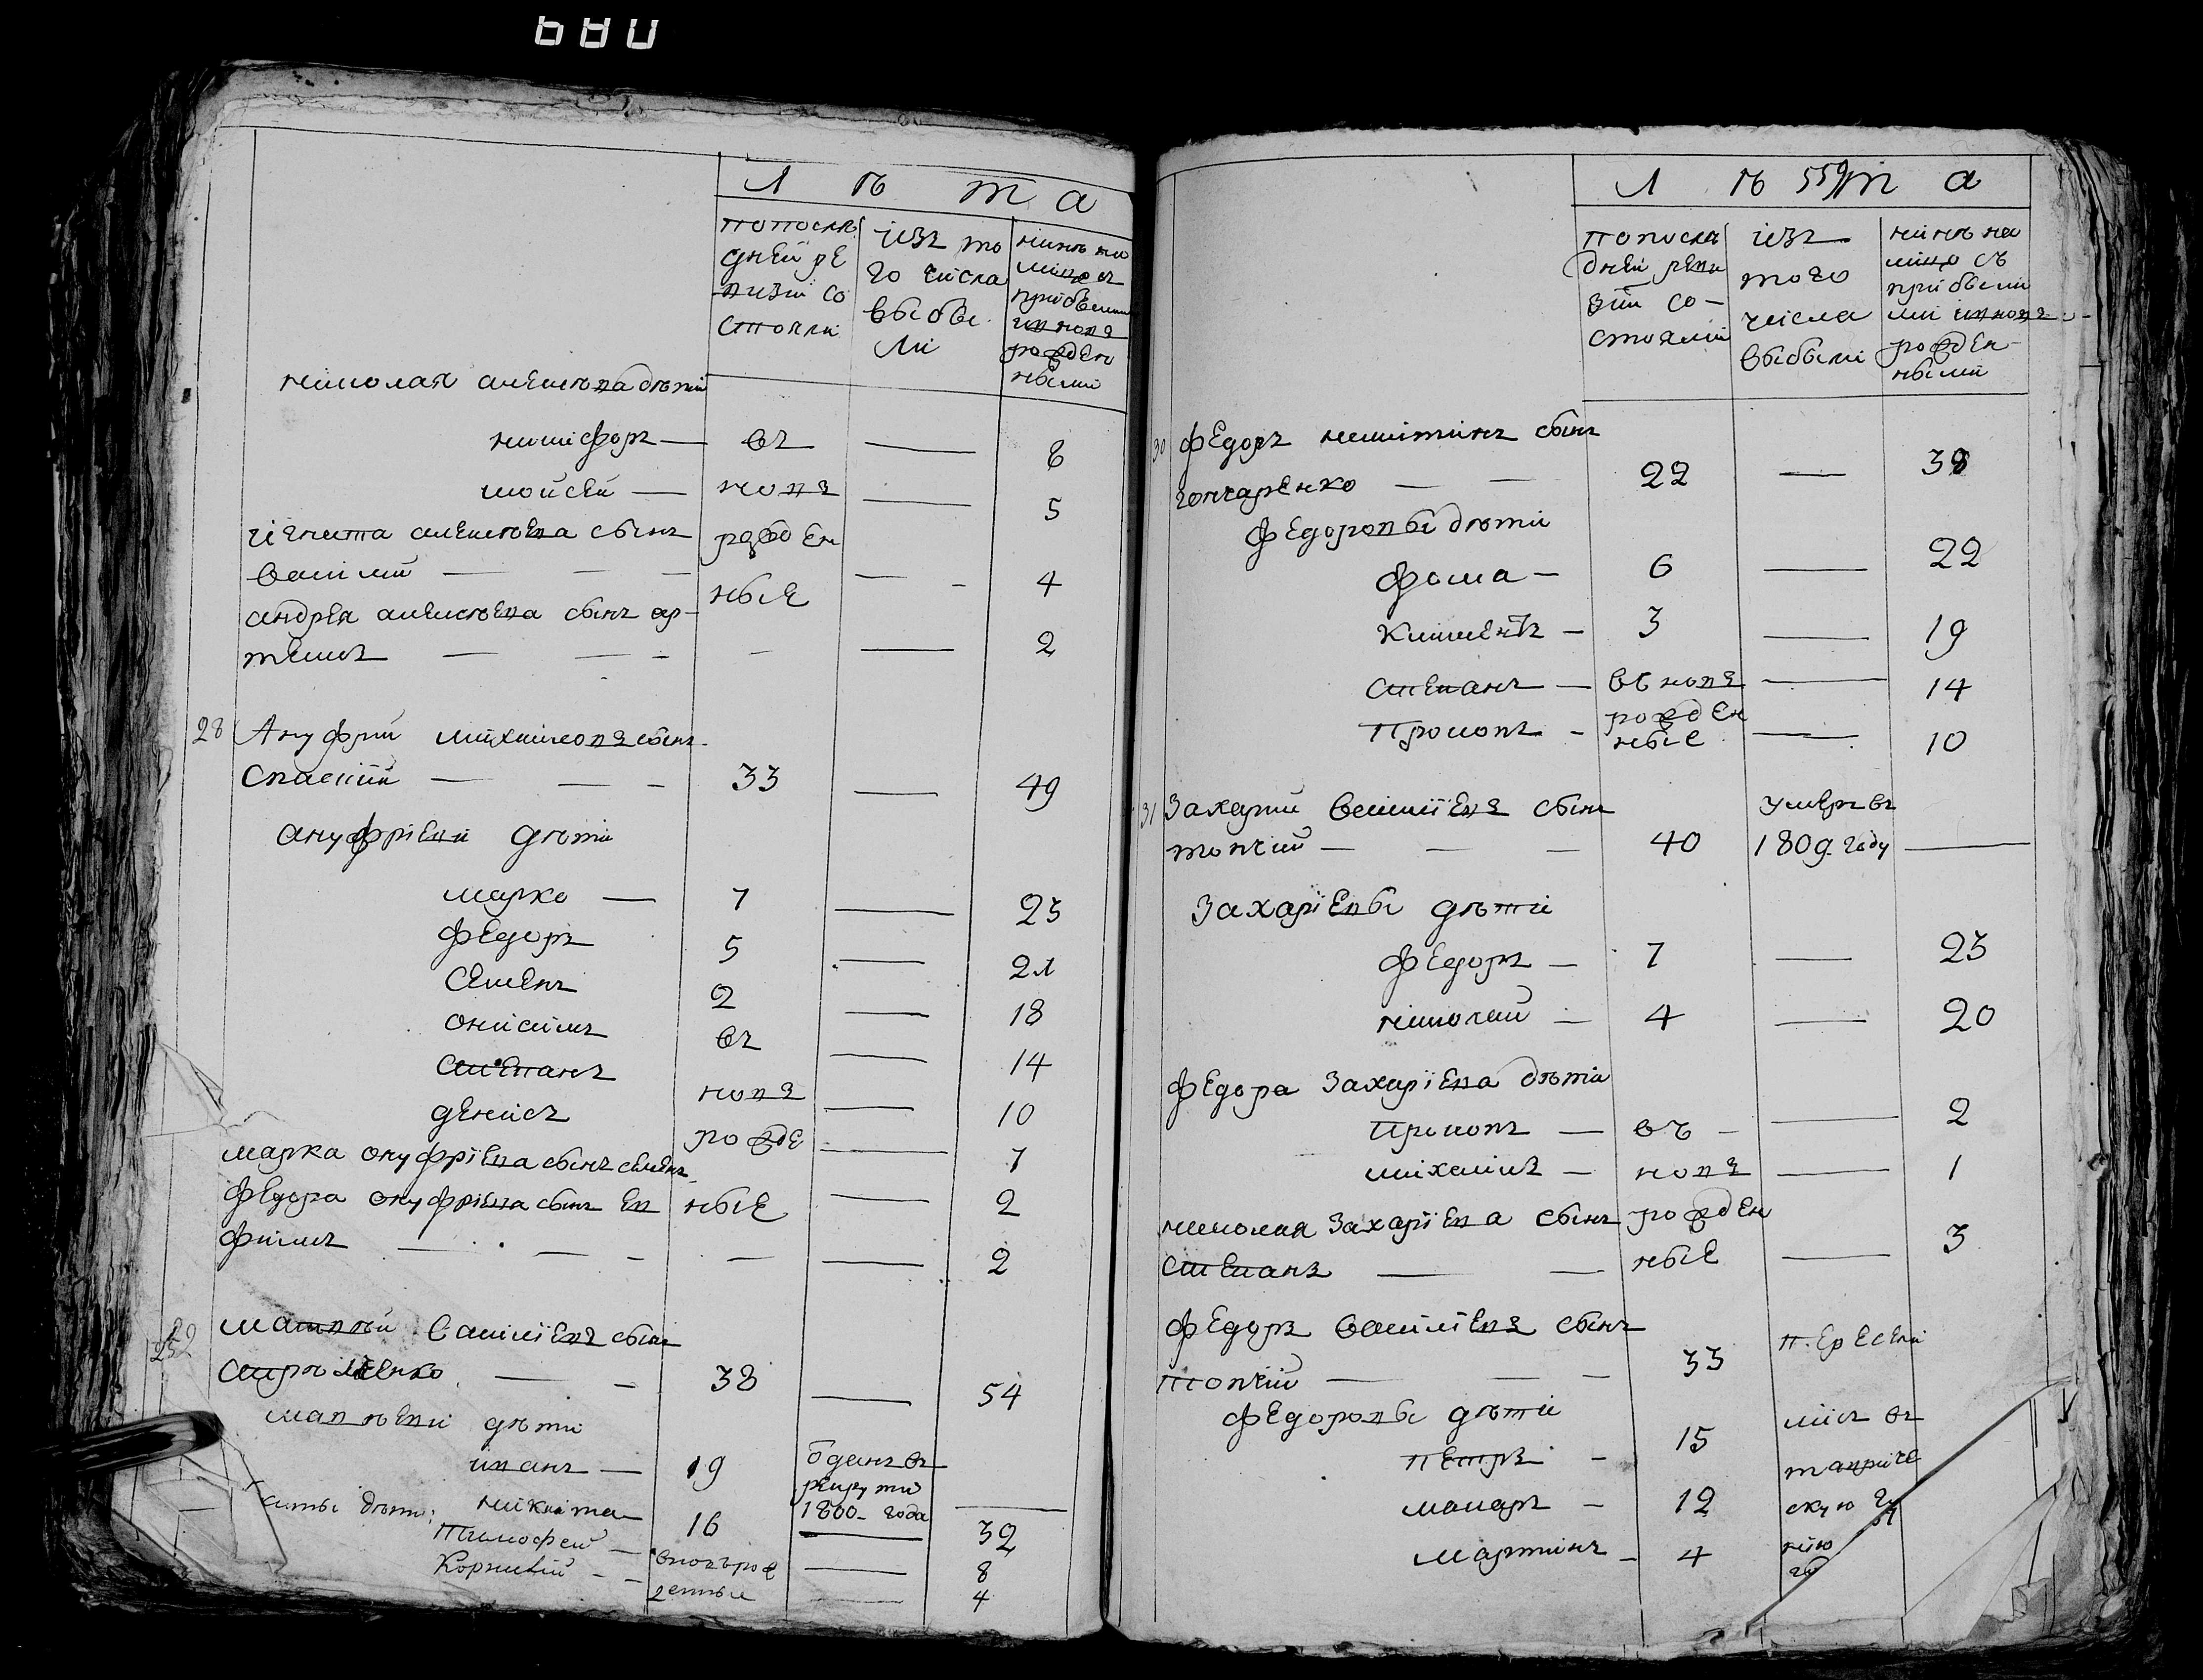 680
Л ѣ т а
попослѣ
дней ре
визіи со
стояли
изъ то
го числа
выбы
ли
нинѣ на
лицо съ
прибылы
ми вновь
рожден
ными
николая алексѣева дѣти
никифоръ — въ — 6
мойсей — новъ — 5
игната алексѣева сынъ рожден
василій — — — 4
андрея алексѣева сынъ ар- ные
темъ — — — — — 2
28 Ануфрий михайловъ сынъ
Спаский — — — 33 — 49
ануфріеви дѣти
марко — 7 — 23
федоръ 5 — 21
Семенъ 2 — 18
онисимъ въ — 14
степанъ новъ — 10
денисъ рожде — 7
марка онуфріева сынъ семенъ — 2
федора онуфріева сынъ ев ные
фимъ — — — — — 2
29 матвѣй василіевъ сынъ
— — 38 — 54
матвѣеви дѣти
иванъ — 19 отданъ въ
рекруты
1800 года —
дѣти: никита 16 — 32
Тимофей — вновь рож — 8
Корнилий — — денные — 4
559
Л ѣ т а
попослѣ
дней реви
зіи со-
стояли
изъ
того
числа
выбыли
нинѣ на
лицо съ
прибылы
ми вновь
рожден-
ными
30 федоръ никитинъ сынъ
гончаренко — — 22 — 38
федоровы дѣти
фома — 6 — 22
Климентъ — 3 — 19
степанъ — въ новъ — 14
Прокопъ — рожден
ные — 10
31 Захарий василіевъ сынъ умеръ въ
топчий — — — 40 1809 году —
Захаріевы дѣти
федоръ — 7 — 23
николай — 4 — 20
федора Захаріева дѣти
Прокопъ — въ — — 2
михаилъ — новъ — 1
николая Захаріева сынъ рожден
степанъ — — ные — 3
федоръ василіевъ сынъ
топчий — — — 33 переселі
федоровы дѣти лись въ
петръ — 15 тавриче
макаръ — 12 скую гу
мартинъ — 4 нію